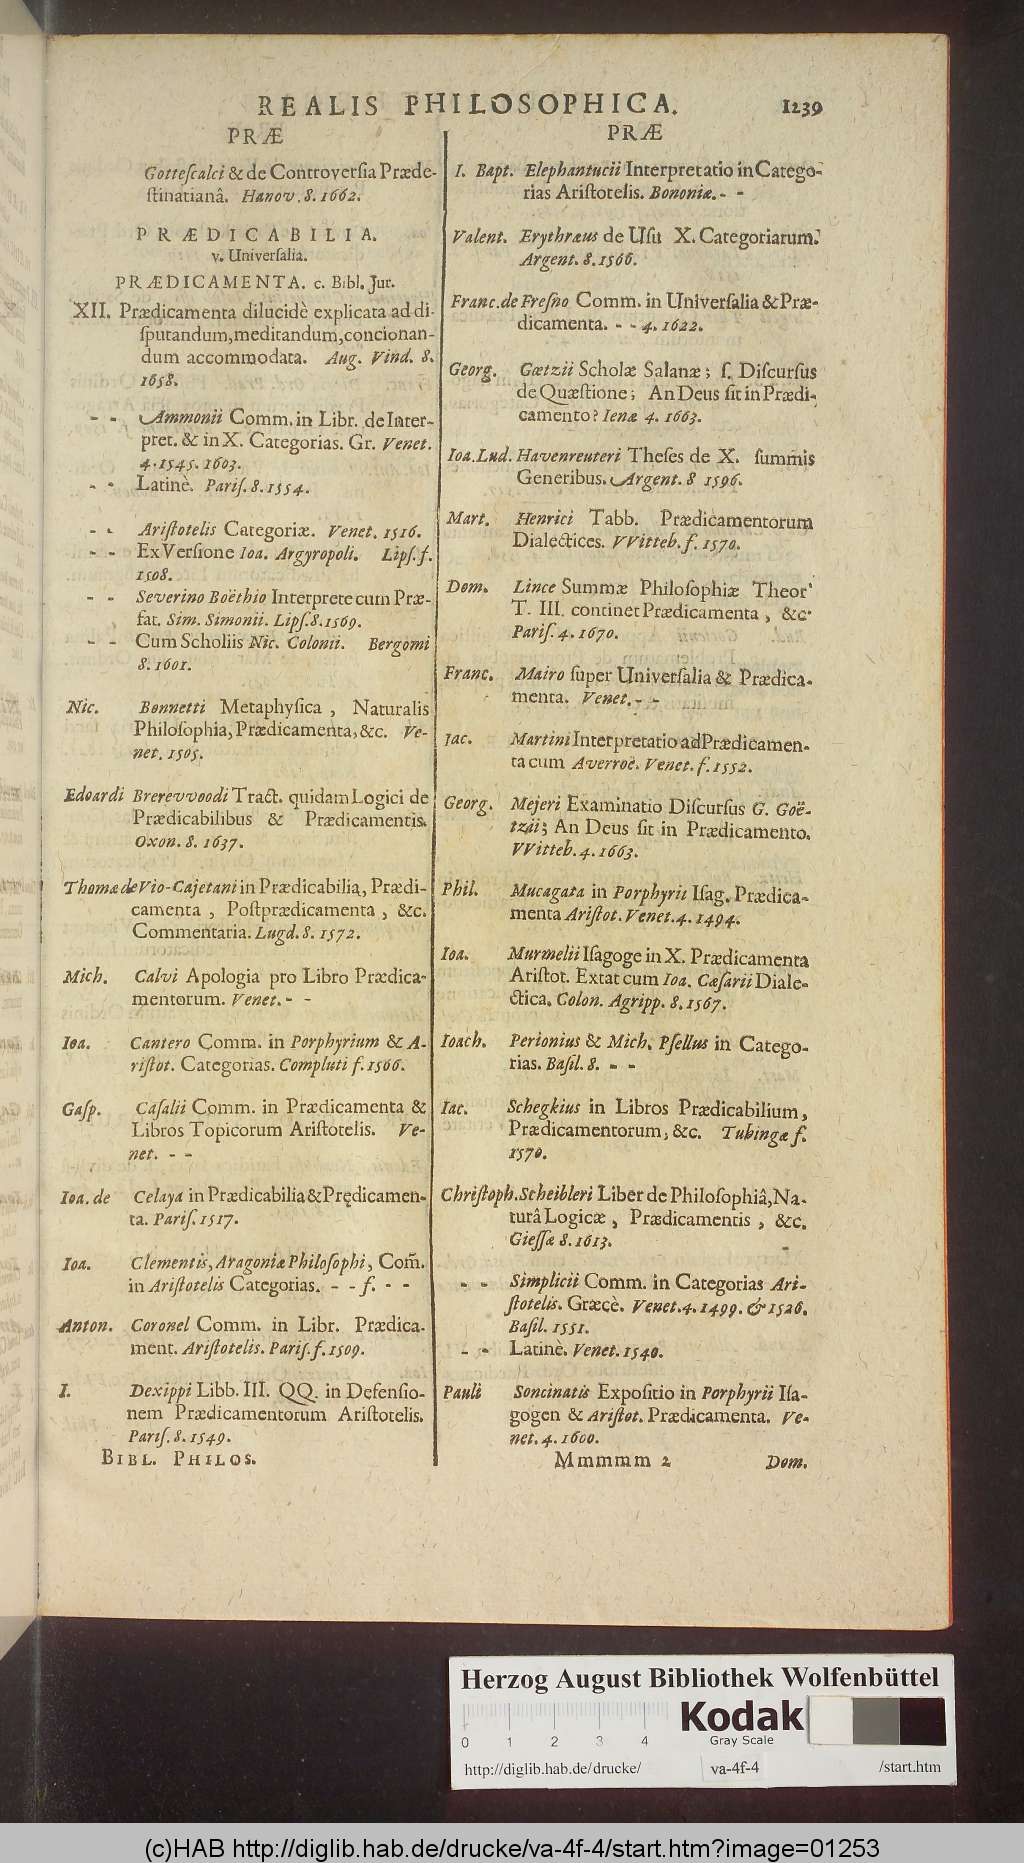 REALIS PHILOSOPHICA. 1239
PRÆ
Gotteſcalci & de Controverſia Præde-
ſtinatianâ. Hanov. 8. 1662.
PRÆDICABILIA.
v. Univerſalia.
PRÆDICAMENTA. c. Bibl. Jur.
XII. Prædicamenta dilucidè explicata ad di-
ſputandum, meditandum, concionan-
dum accommodata. Aug. Vind. 8.
1658.
- - Ammonii Comm. in Libr. de Inter-
pret. & in X. Categorias. Gr. Venet.
4. 1545. 1603.
- - Latinè. Pariſ. 8. 1554.
- - Ariſtotelis Categoriæ. Venet. 1516.
- - Ex Verſione Ioa. Argyropoli. Lipſ. f.
1508.
- - Severino Boëthio Interprete cum Præ-
fat. Sim. Simonii. Lipſ. 8. 1569.
- - Cum Scholiis Nic. Colonii. Bergomi
8. 1601.
Nic. Bonnetti Metaphyſica, Naturalis
Philoſophia, Prædicamenta, &c. Ve-
net. 1505.
Edoardi Brerevvoodi Tract. quidam Logici de
Prædicabilibus & Prædicamentis.
Oxon. 8. 1637.
Thomæ de Vio-Cajetani in Prædicabilia, Prædi-
camenta, Poſtprædicamenta, &c.
Commentaria. Lugd. 8. 1572.
Mich. Calvi Apologia pro Libro Prædica-
mentorum. Venet. - -
Ioa. Cantero Comm. in Porphyrium & A-
riſtot. Categorias. Compluti f. 1566.
Gaſp. Caſalii Comm. in Prædicamenta &
Libros Topicorum Ariſtotelis. Ve-
net. - -
Ioa. de Celaya in Prædicabilia & Prędicamen-
ta. Pariſ. 1517.
Ioa. Clementis, Aragoniæ Philoſophi, Com̃.
in Ariſtotelis Categorias. - - f. - -
Anton. Coronel Comm. in Libr. Prædica-
ment. Ariſtotelis. Pariſ. f. 1509.
I. Dexippi Libb. III. QQ. in Defenſio-
nem Prædicamentorum Ariſtotelis.
Pariſ. 8. 1549.
BIBL. PHILOS.
PRÆ
I. Bapt. Elephantucii Interpretatio in Catego-
rias Ariſtotelis. Bononiæ. - -
Valent. Erythræus de Uſu X. Categoriarum.
Argent. 8. 1566.
Franc. de Freſno Comm. in Univerſalia & Præ-
dicamenta. - - 4. 1622.
Georg. Gœtzii Scholæ Salanæ; ſ. Diſcurſus
de Quæſtione; An Deus ſit in Prædi-
camento? Ienæ 4. 1663.
Ioa. Lud. Havenreuteri Theſes de X. ſummis
Generibus. Argent. 8 1596.
Mart. Henrici Tabb. Prædicamentorum
Dialectices. VVitteb. f. 1570.
Dom. Lince Summæ Philoſophiæ Theor.
T. III. continet Prædicamenta, &c.
Pariſ. 4. 1670.
Franc. Mairo ſuper Univerſalia & Prædica-
menta. Venet. - -
Iac. Martini Interpretatio ad Prædicamen-
ta cum Averroë. Venet. f. 1552.
Georg. Mejeri Examinatio Diſcurſus G. Goë-
tzii; An Deus ſit in Prædicamento.
VVitteb. 4. 1663.
Phil. Mucagata in Porphyrii Iſag. Prædica-
menta Ariſtot. Venet. 4. 1494.
Ioa. Murmelii Iſagoge in X. Prædicamenta
Ariſtot. Extat cum Ioa. Cæſarii Diale-
ctica. Colon. Agripp. 8. 1567.
Ioach. Perionius & Mich. Pſellus in Catego-
rias. Baſil. 8. - -
Iac. Schegkius in Libros Prædicabilium,
Prædicamentorum, &c. Tubingæ f.
1570.
Chriſtoph. Scheibleri Liber de Philoſophiâ, Na-
turâ Logicæ, Prædicamentis, &c.
Gieſſæ 8. 1613.
- - Simplicii Comm. in Categorias Ari-
ſtotelis. Græcè. Venet. 4. 1499. & 1526.
Baſil. 1551.
- - Latinè. Venet. 1540.
Pauli Soncinatis Expoſitio in Porphyrii Iſa-
gogen & Ariſtot. Prædicamenta. Ve-
net. 4. 1600.
Mmmmm 2 Dom.
Herzog August Bibliothek Wolfenbüttel
0 1 2 3 4
Kodak
Gray Scale
http://diglib.hab.de/drucke/ va-4f-4 /start.htm
(c)HAB http://diglib.hab.de/drucke/va-4f-4/start.htm?image=01253